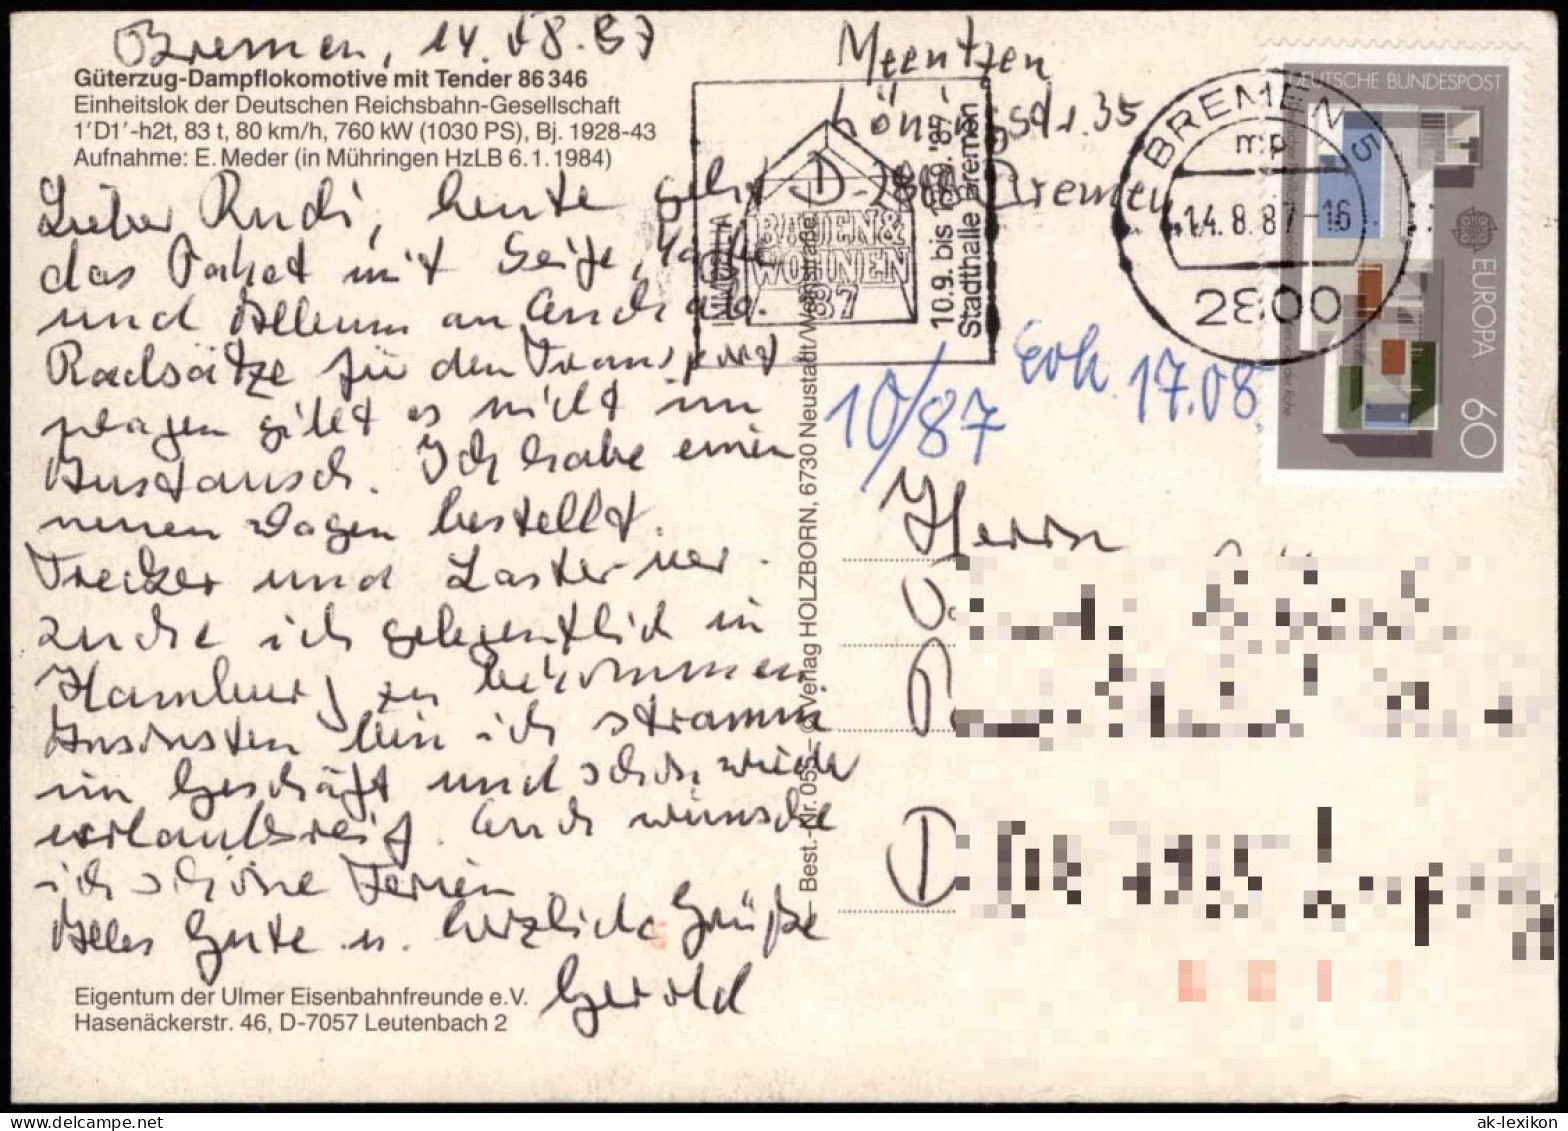 Bremen, 14.08.87
Güterzug-Dampflokomotive mit Tender 86 346
Einheitslok der Deutschen Reichsbahn-Gesellschaft
1'D1'-h2t, 83 t, 80 km/h, 760 kW (1030 PS), Bj. 1928-43
Aufnahme: E. Meder (in Mühringen HzLB 6.1.1984)
Lieber Rudi, heute geht
das Paket mit Seife,
und Album an Euch ab.
Radsätze für den Transport
wagen gibt es nicht im
Austausch. Ich habe einen
neuen Wagen bestellt.
Trecker und Laster ver-
suche ich gelegentlich in
Hamburg zu bekommen.
Ansonsten bin ich stramm
im Geschäft und schon wieder
urlaubsreif. Euch wünsche
ich schöne Ferien
Alles Gute u. herzliche Grüße
Gerold
Eigentum der Ulmer Eisenbahnfreunde e.V.
Hasenäckerstr. 46, D-7057 Leutenbach 2
Best.-Nr. 055 – © Verlag HOLZBORN, 6730 Neustadt/Weinstraße
Meentzen
35
D-2800 Bremen
BAUEN&
WOHNEN
87
10.9. bis 13.9.'87
Stadthalle Bremen
BREMEN 5
mp
14.8.87-16
2800
DEUTSCHE BUNDESPOST
EUROPA
60
10/87
Erh. 17.08.
Herrn
D